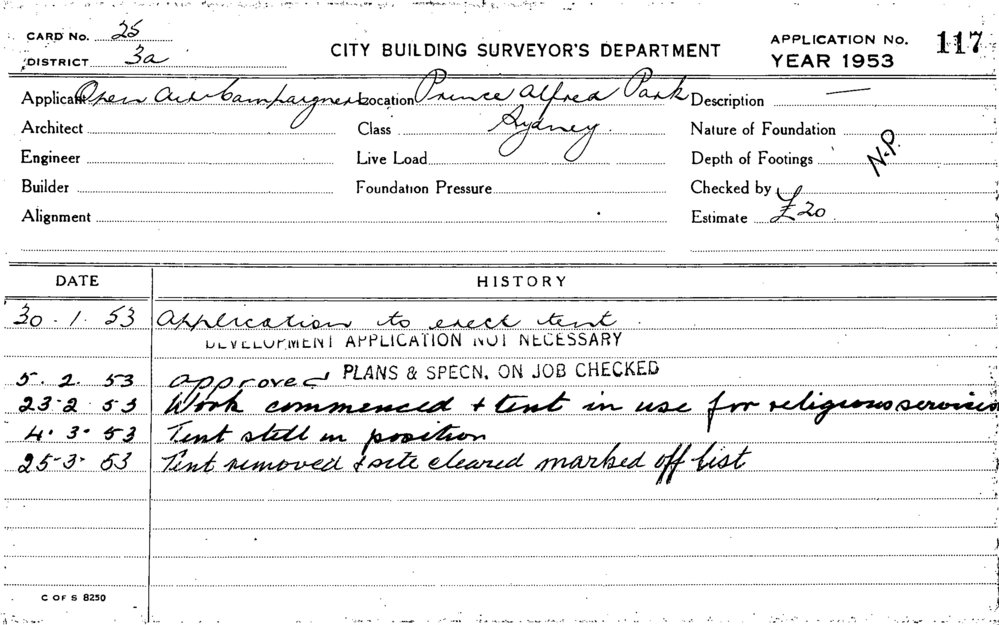 CARD No. 25
DISTRICT 3a
CITY BUILDING SURVEYOR'S DEPARTMENT
APPLICATION No. 117
YEAR 1953
Applicant Open Air Campaigners Location Prince Alfred Park Description —
Architect Class Sydney. Nature of Foundation
Engineer Live Load Depth of Footings N.P.
Builder Foundation Pressure Checked by
Alignment Estimate £20
DATE HISTORY
30.1.53 Application to erect tent.
DEVELOPMENT APPLICATION NOT NECESSARY
5.2.53 approved PLANS & SPECN. ON JOB CHECKED
23-2-53 Work commenced + tent in use for religious services
4.3.53 Tent still in position
25-3-53 Tent removed & site cleared marked off list
C OF S 8250